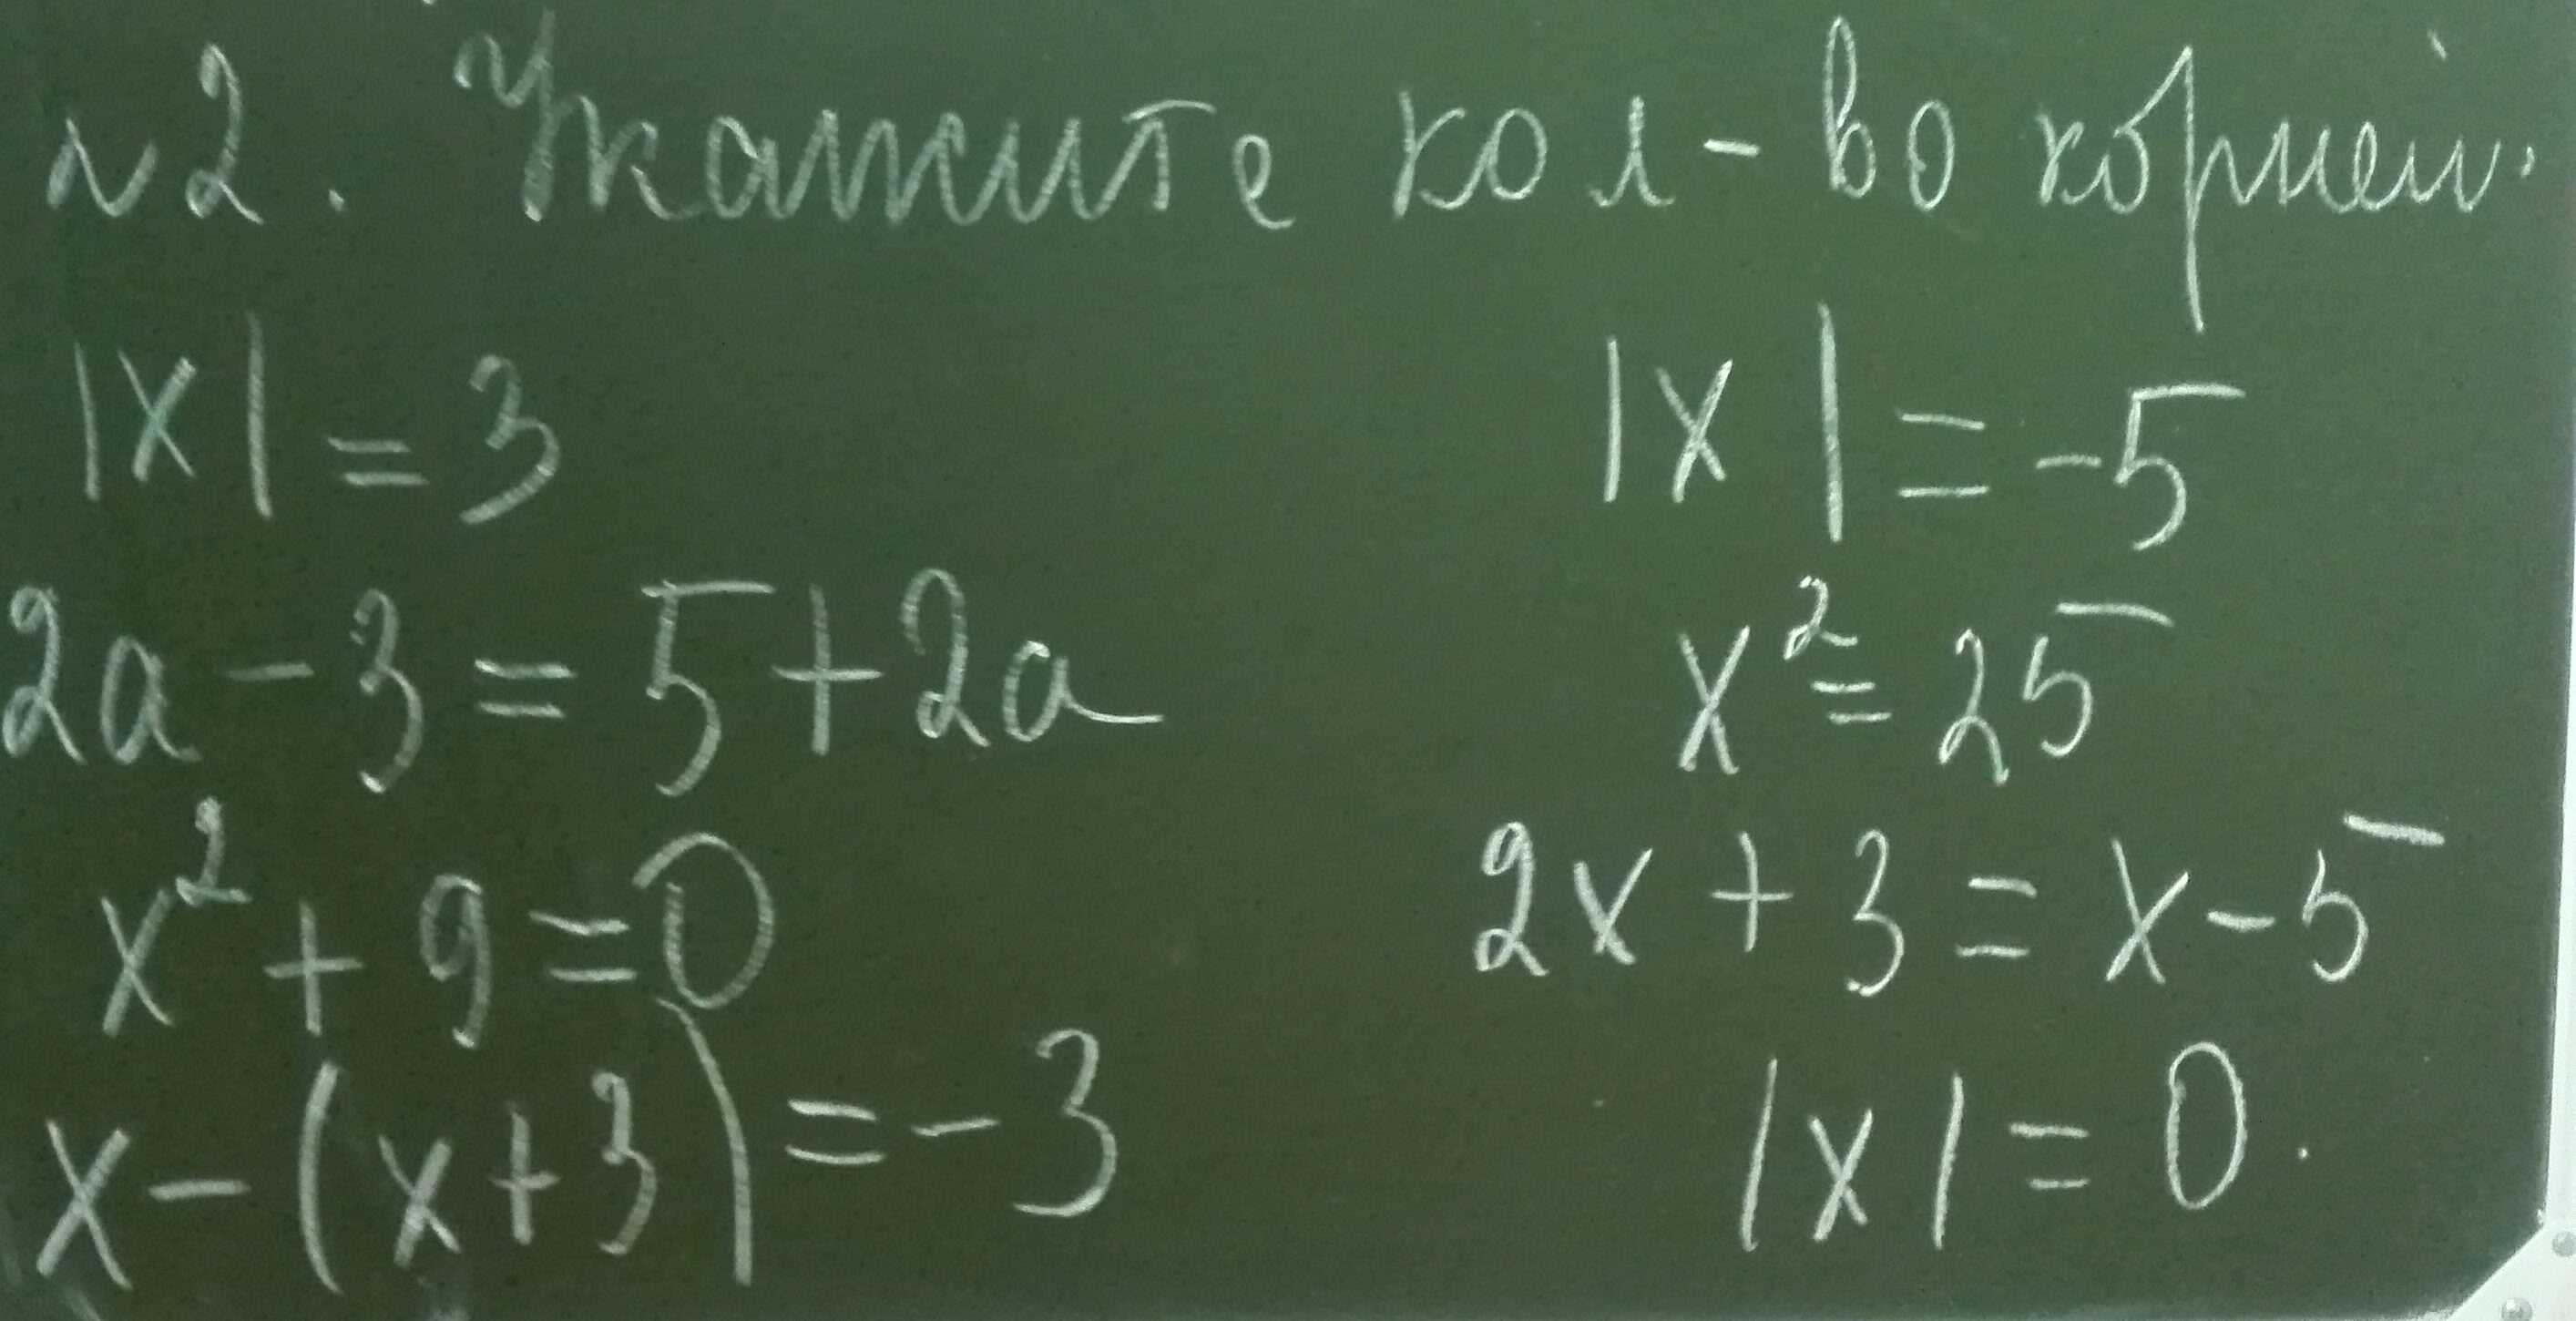 N2. Укажите кол-во корней.
|x| = 3
2a - 3 = 5 + 2a
x² + 9 = 0
x - (x + 3) = -3
|x| = -5
x² = 25
2x + 3 = x - 5
|x| = 0.